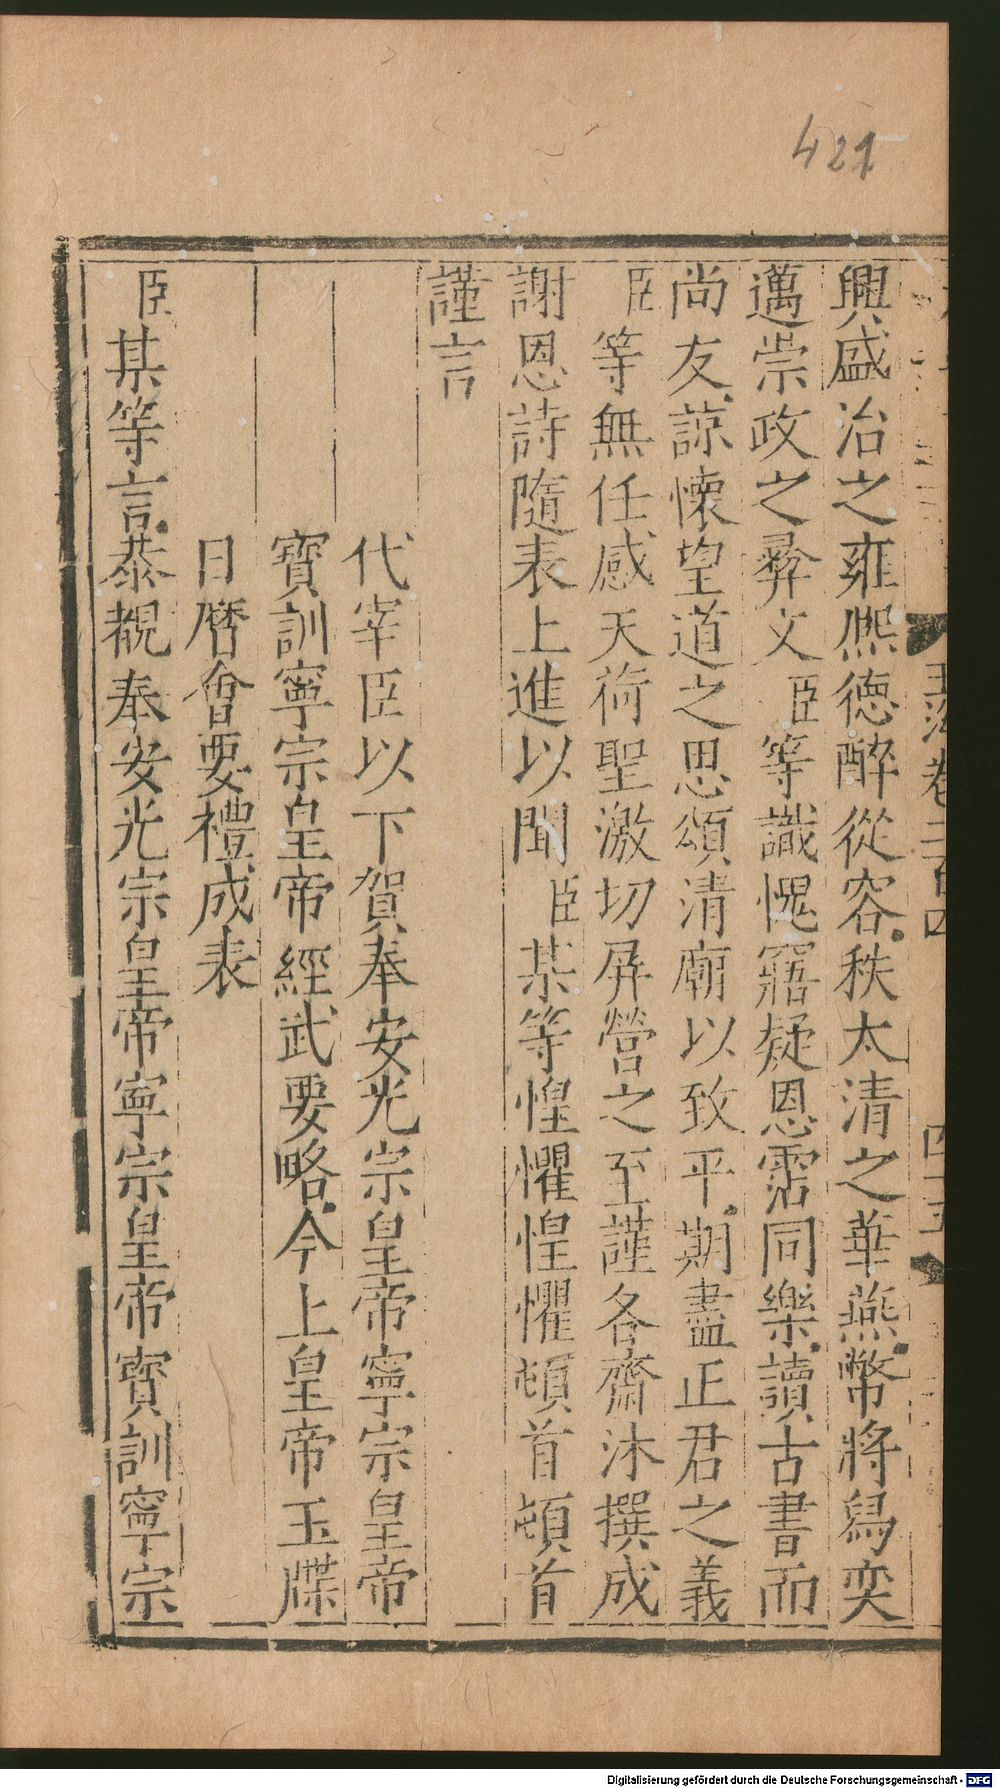 421
興盛治之雍熈德醉從容秩太清之華燕幣將舄奕
邁崇政之彞文臣等識愧寤疑恩霑同樂讀古書而
尚友諒懐望道之思頌清廟以致平期盡正君之義
臣等無任感天荷聖激切屏營之至謹各齋沐撰成
謝恩詩隨表上進以聞臣某等惶懼惶懼頓首頓首
謹言
代宰臣以下賀奉安光宗皇帝寧宗皇帝
寳訓寧宗皇帝經武要略今上皇帝玉牒
日曆會要禮成表
臣某等言恭覩奉安光宗皇帝寧宗皇帝寳訓寧宗
玉海卷二百四
四十五
Digitalisierung gefördert durch die Deutsche Forschungsgemeinschaft - DFG